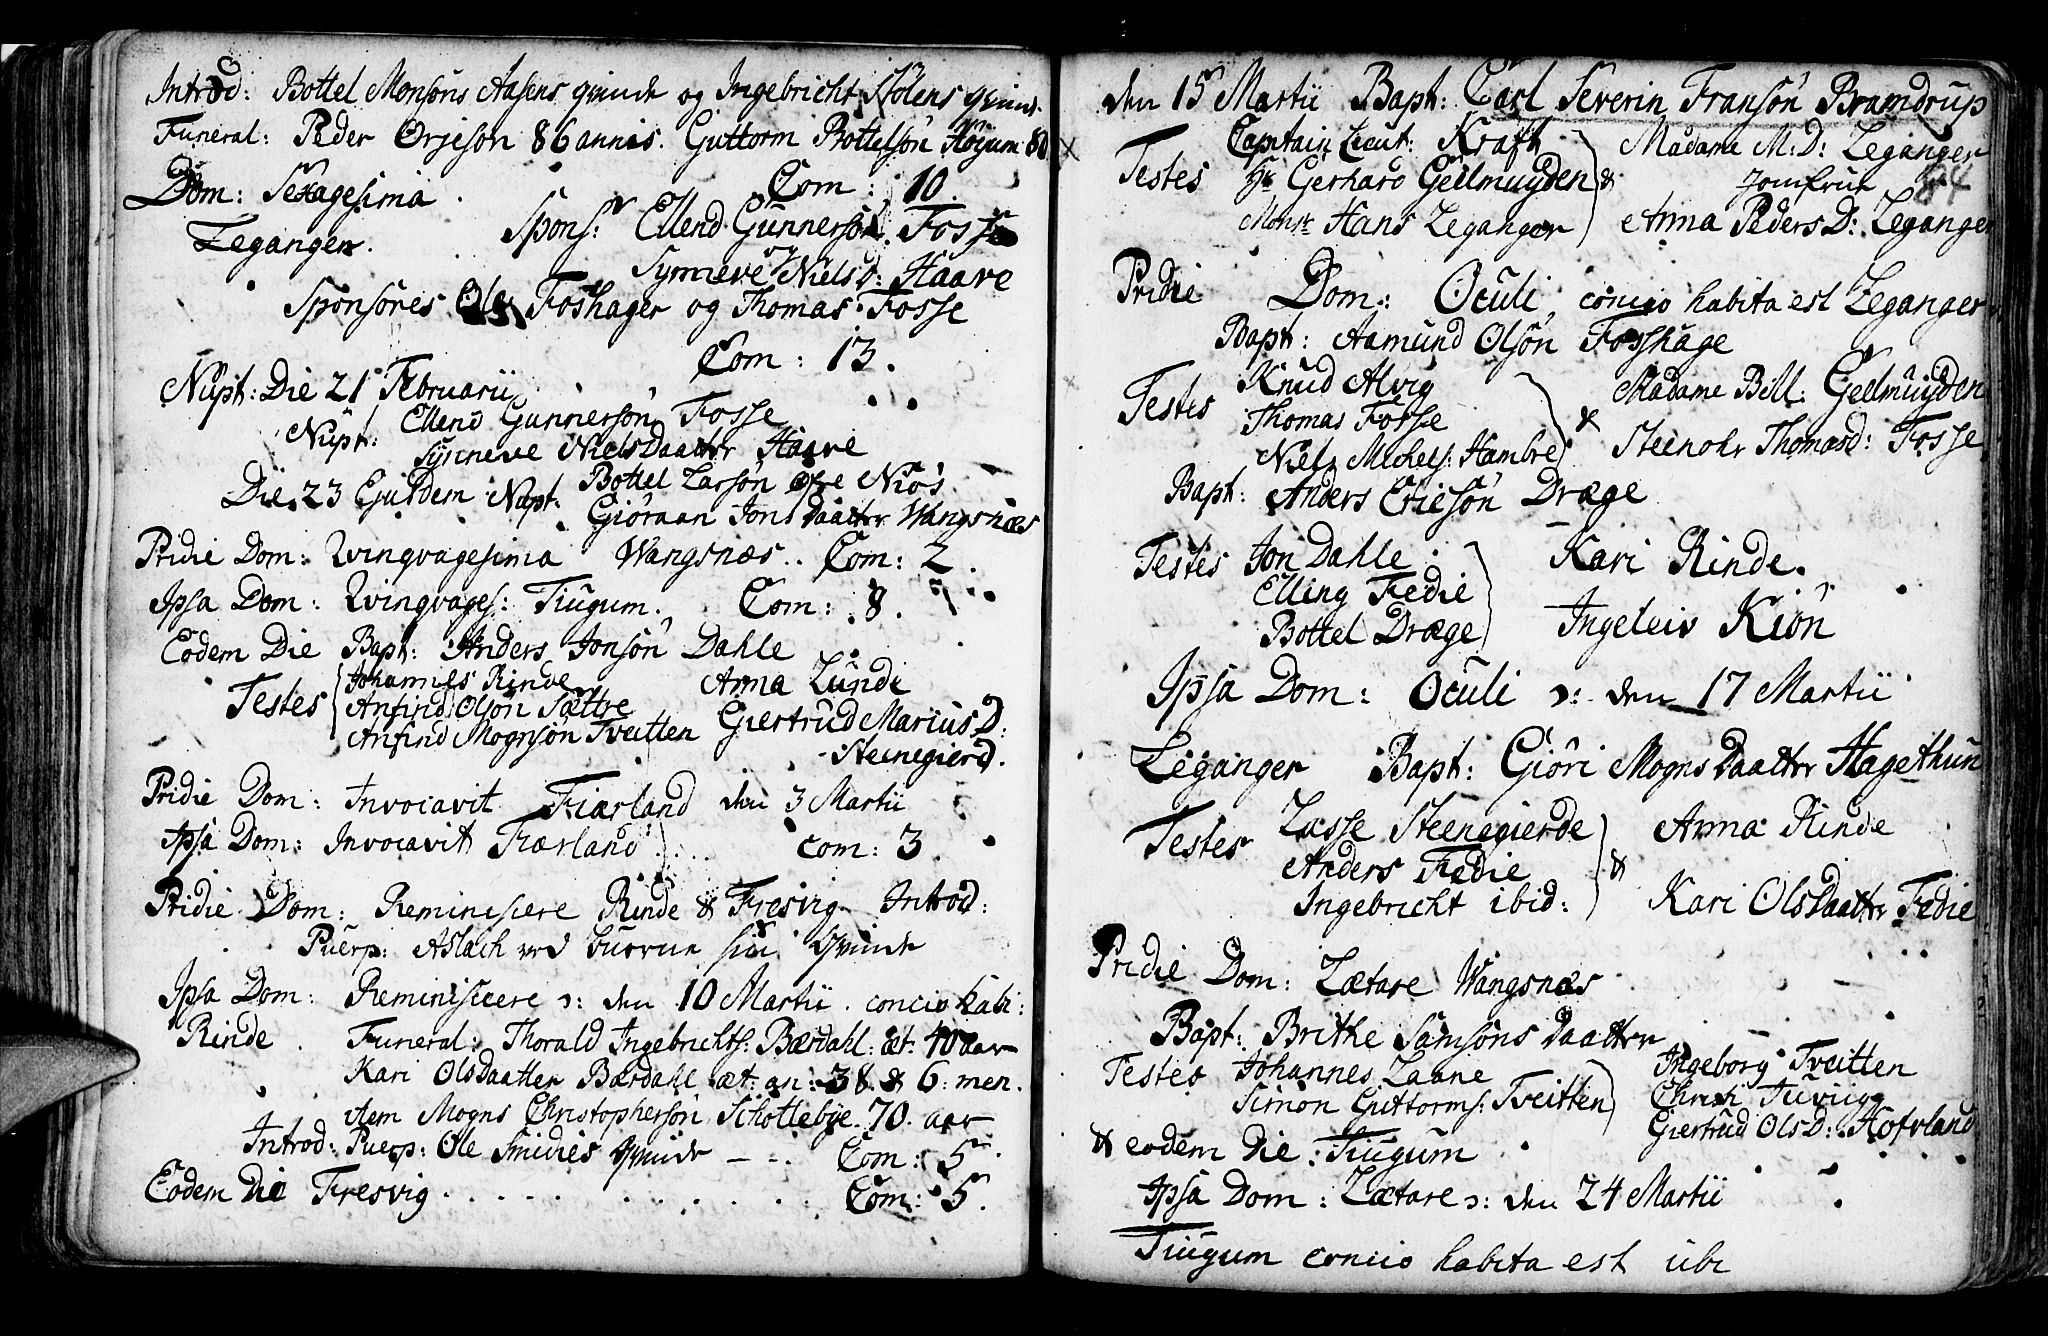 Introd: Bottel Monsöns Aasens qvinde og Ingebricht Stölens qvinde
Funeral: Peder Orjeson 86 annis. Guttorm Bottelsön Höyum 80
Com: 10.
Dom: Sexagesima
Leganger. Spons: Ellend Gunnersön Fosse
Synneve NielsD: Haave
Sponsores Ole Foshager og Thomas Fosse
Com: 13.
Nupt: Die 21 Februarii
Nupt: Ellend Gunnersön Fosse
Synneve NielsDaatter Haave
Die 23 Ejusdem Nupt. Bottel Larsön Öfre Niös
Giöraan JonsDaatter Wangsnæs
Pridie Dom: Qvinqvagesima Wangsnæs.. Com: 2.
Ipsa Dom: Qvinqvages: Tiugum. Com: 8.
Eodem Die Bapt: Anders Jonsön Dahle
Testes Johannes Rinde Anna Lunde
Anfind Olsön Sættre Giertrud MariusD:
Anfind Mognsön Tveitten Steenegierd.
Pridie Dom: Invocavit Fiærland den 3 Martii
Ipsa Dom: Invocavit Fiærland com: 3.
Pridie Dom: Reminiscere Rinde & Fresvig. Introd:
Puerp: Aslach qvinde
Ipsa Dom: Reminiscere ɔ: den 10 Martii. concio habi:
Rinde. Funeral: Thorald Ingebrichts: Bærdahl. æt. 40 aar
Kari OlsDaatter Bærdahl æt: an: 38 & 6: men.
item Mogns Christophersön Schottebye. 70. aar
Introd: Puerp: Ole Smides qvinde Com: 5.
Eodem Die Fresvig. Com: 5.
den 15 Martii Bapt: Carl Severin Fransön Bramdrup
Testes Captain Lieut: Kraft Madame M:D: Leganger
Hr Gerhard Geelmuyden & Jomfrue
Monsr Hans Leganger Anna PedersD: Leganger
84
Pridie Dom: Oculi, concio habita est Leganger
Bapt: Aamund Olsön Fosshage
Testes Knud Alvig Madame Bill: Geelmuyden
Thomas Fosse &
Niels Michels: Hambre Steenohr Thomasd: Fosse
Bapt: Anders Ericsön Dræge
Testes Jon Dahle Kari Rinde.
Elling Fedie
Bottel Dræge Ingeleiv Kiön
Ipsa Dom: Oculi ɔ: den 17 Martii
Leganger Bapt: Giöri MognsDaatter Hagethun
Testes Lasse Steenegierde Anna Rinde
Anders Fedie &
Ingebricht ibid: Kari OlsDaatter Fedie
Pridie Dom: Lætare Wangsnæs
Bapt: Brithe SamsönsDaatter
Testes Johannes Laane Ingeborg Tveitten
Simon Guttorms: Tveitten
Giertrud OlsD: Hofvland
& eodem Die: Tiugum
Ipsa Dom: Lætare ɔ: den 24 Martii
Tiugum concio habita est ubi